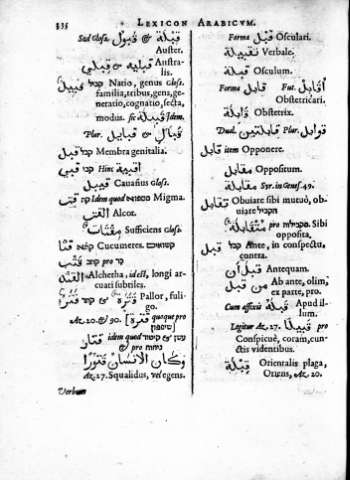 335 LEXICON ARABICVM.
Sed Glos. قبلة & قبول
Auster.
قبليه & قبلي Austra-
lis.
قبيل Natio, genus Glos.
familia, tribus, gens, ge-
neratio, cognatio, secta,
modus. sic قبيلة Idem.
Plur. قبايل &
קבל Membra genitalia. قبل
קבי Hinc اقبية
Cavatius Glos. قبيل
קת Idem quod Migma. قت
القت Alcot.
مقتات Sufficiens Glos.
קשואים Cucumeres. קשא قثا
קד pro
القتد Alchetha, id est, longi ar-
cuati subtiles.
قترة & Pallor, fuli-
go.
Az. 20. & 90. [قترة quoque pro
קיטור idem quod قتار
& pro ניחוח
وكان الانسان قتورا
Az. 27. Squalidus, vel egens.
Verbum
Forma قبل Osculari.
تقبيلة Verbale.
قبلة Osculum.
Forma قابل Fut. اقابل
Obstetricari.
قابلة Obstetrix.
Dual. قابلتين Plur. قوابل
قابل item Opponere.
مقابل Oppositum.
مقابلة Syr. in Genes. 49.
تقابل Obviare sibi mutuò, ob-
viare הקביל
متقابلة pro מקבילות. Sibi
opposita.
קבל Ante, in conspectu, قبل
contra.
قبل ان Antequam.
من قبل Ab ante, olim,
ex parte, pro.
Cum affixis قبلة Apud il-
lum.
Legitur Az. 27. قبيلا pro
Conspicuè, coram, cun-
ctis videntibus.
قبلة Orientalis plaga,
Oriens, Az. 20.